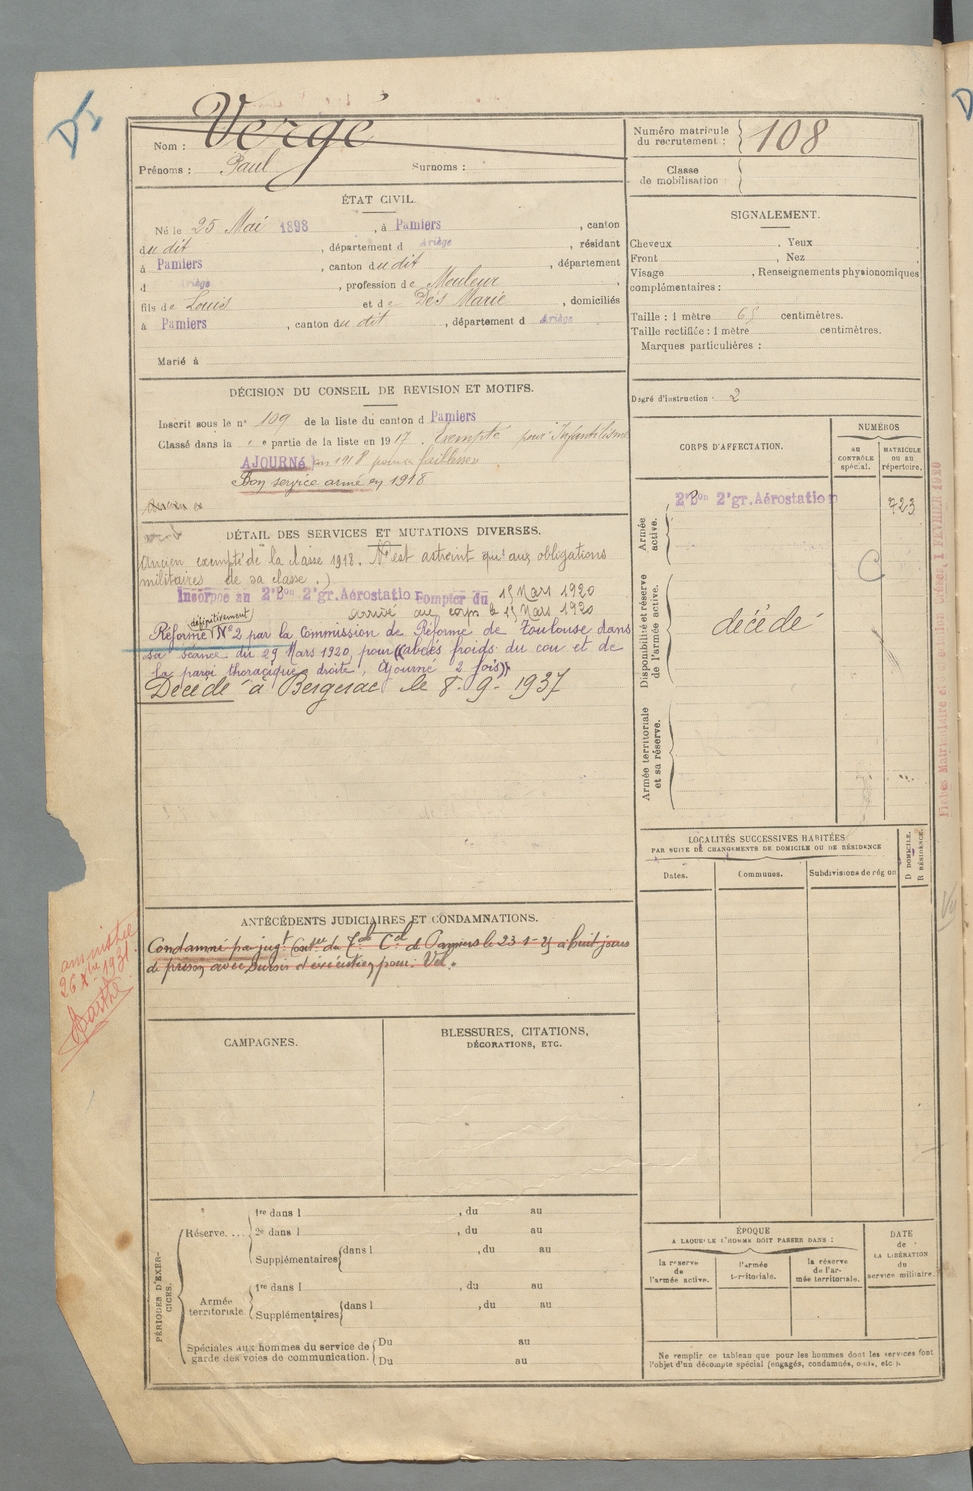 Dᶜ
Nom : Vergé
Prénoms : Paul Surnoms :
Numéro matricule du recrutement : 108
Classe de mobilisation :
ÉTAT CIVIL.
Né le 25 Mai 1898, à Pamiers, canton
du dit, département d Ariège, résidant
à Pamiers, canton du dit, département
d Ariège, profession de Mouleur
fils de Louis et de Dés Marie, domiciliés
à Pamiers, canton du dit, département d Ariège
Marié à
SIGNALEMENT.
Cheveux , Yeux .
Front , Nez
Visage , Renseignements physionomiques
complémentaires :
Taille : 1 mètre 65 centimètres.
Taille rectifiée : 1 mètre centimètres.
Marques particulières :
Degré d'instruction : 2
DÉCISION DU CONSEIL DE REVISION ET MOTIFS.
Inscrit sous le n° 109 de la liste du canton d Pamiers
Classé dans la e partie de la liste en 1917. Exempté pour Infantilisme
AJOURNÉ en 1918 pour faiblesse
Bon service armé en 1918
DÉTAIL DES SERVICES ET MUTATIONS DIVERSES.
Ancien exempté de la classe 1918. N'est astreint qu'aux obligations
militaires de sa classe.)
Incorporé au 2e Bon 2e gr. Aérostation Compter du 15 Mars 1920
arrivé au corps le 15 Mars 1920
Réformé définitivement N°2 par la Commission de Réforme de Toulouse dans
sa séance du 29 Mars 1920, pour ((abcès froids du cou et de
la paroi thoracique droite. Ajourné 2 fois))
Décédé à Bergerac le 8-9-1937
CORPS D'AFFECTATION.
NUMÉROS
au CONTRÔLE spécial.
MATRICULE ou au répertoire.
Armée active.
2e Bon 2e gr. Aérostation 723
C
Disponibilité et réserve de l'armée active.
décédé
Armée territoriale et sa réserve.
LOCALITÉS SUCCESSIVES HABITÉES
PAR SUITE DE CHANGEMENTS DE DOMICILE OU DE RÉSIDENCE
Dates. Communes. Subdivisions de région
D DOMICILE. R RÉSIDENCE.
ANTÉCÉDENTS JUDICIAIRES ET CONDAMNATIONS.
Condamné par jugt Contre du Tal Cel de Pamiers le 23-1-25 à huit jours
de prison avec sursis d'exécution pour : Vol.
amnistie
26 Xbre 1931
Barthe
CAMPAGNES.
BLESSURES, CITATIONS,
DÉCORATIONS, ETC.
PÉRIODES D'EXERCICES.
Réserve....
1re dans l , du au
2e dans l , du au
Supplémentaires dans l , du au
Armée territoriale
1re dans l , du au
Supplémentaires dans l , du au
Spéciales aux hommes du service de
garde des voies de communication.
Du au
Du au
ÉPOQUE
A LAQUELLE L'HOMME DOIT PASSER DANS :
la réserve de l'armée active.
l'armée territoriale.
la réserve de l'armée territoriale.
DATE de LA LIBÉRATION du service militaire.
Ne remplir ce tableau que pour les hommes dont les services font
l'objet d'un décompte spécial (engagés, condamnés, omis, etc.).